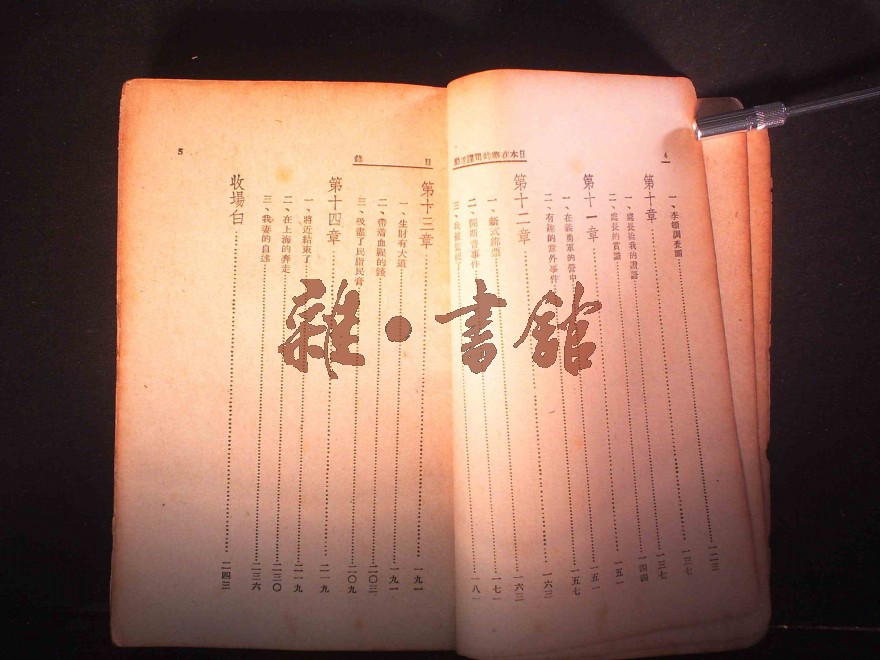 4
日本在華的間諜活動
一、李頓調查團 一二三
第十章 一三七
一、處長給我的證 一三七
二、處長的賞識 一四四
第十一章 一五一
一、在義勇軍的營中 一五一
二、有趣的意外事件 一五七
第十二章 一六三
一、新式綁票 一六三
二、開 音事件 一七一
三、我被監視了 一八一
目錄
5
第十三章 一九一
一、生財有大道 一九一
二、帶着血腥的錢 二〇三
三、吸盡了民脂民膏 二〇九
第十四章 二一九
一、將近結束了 二一九
二、在上海的奔走 二三〇
三、我妻的自述 二三六
收場白 二四三
雜·書館